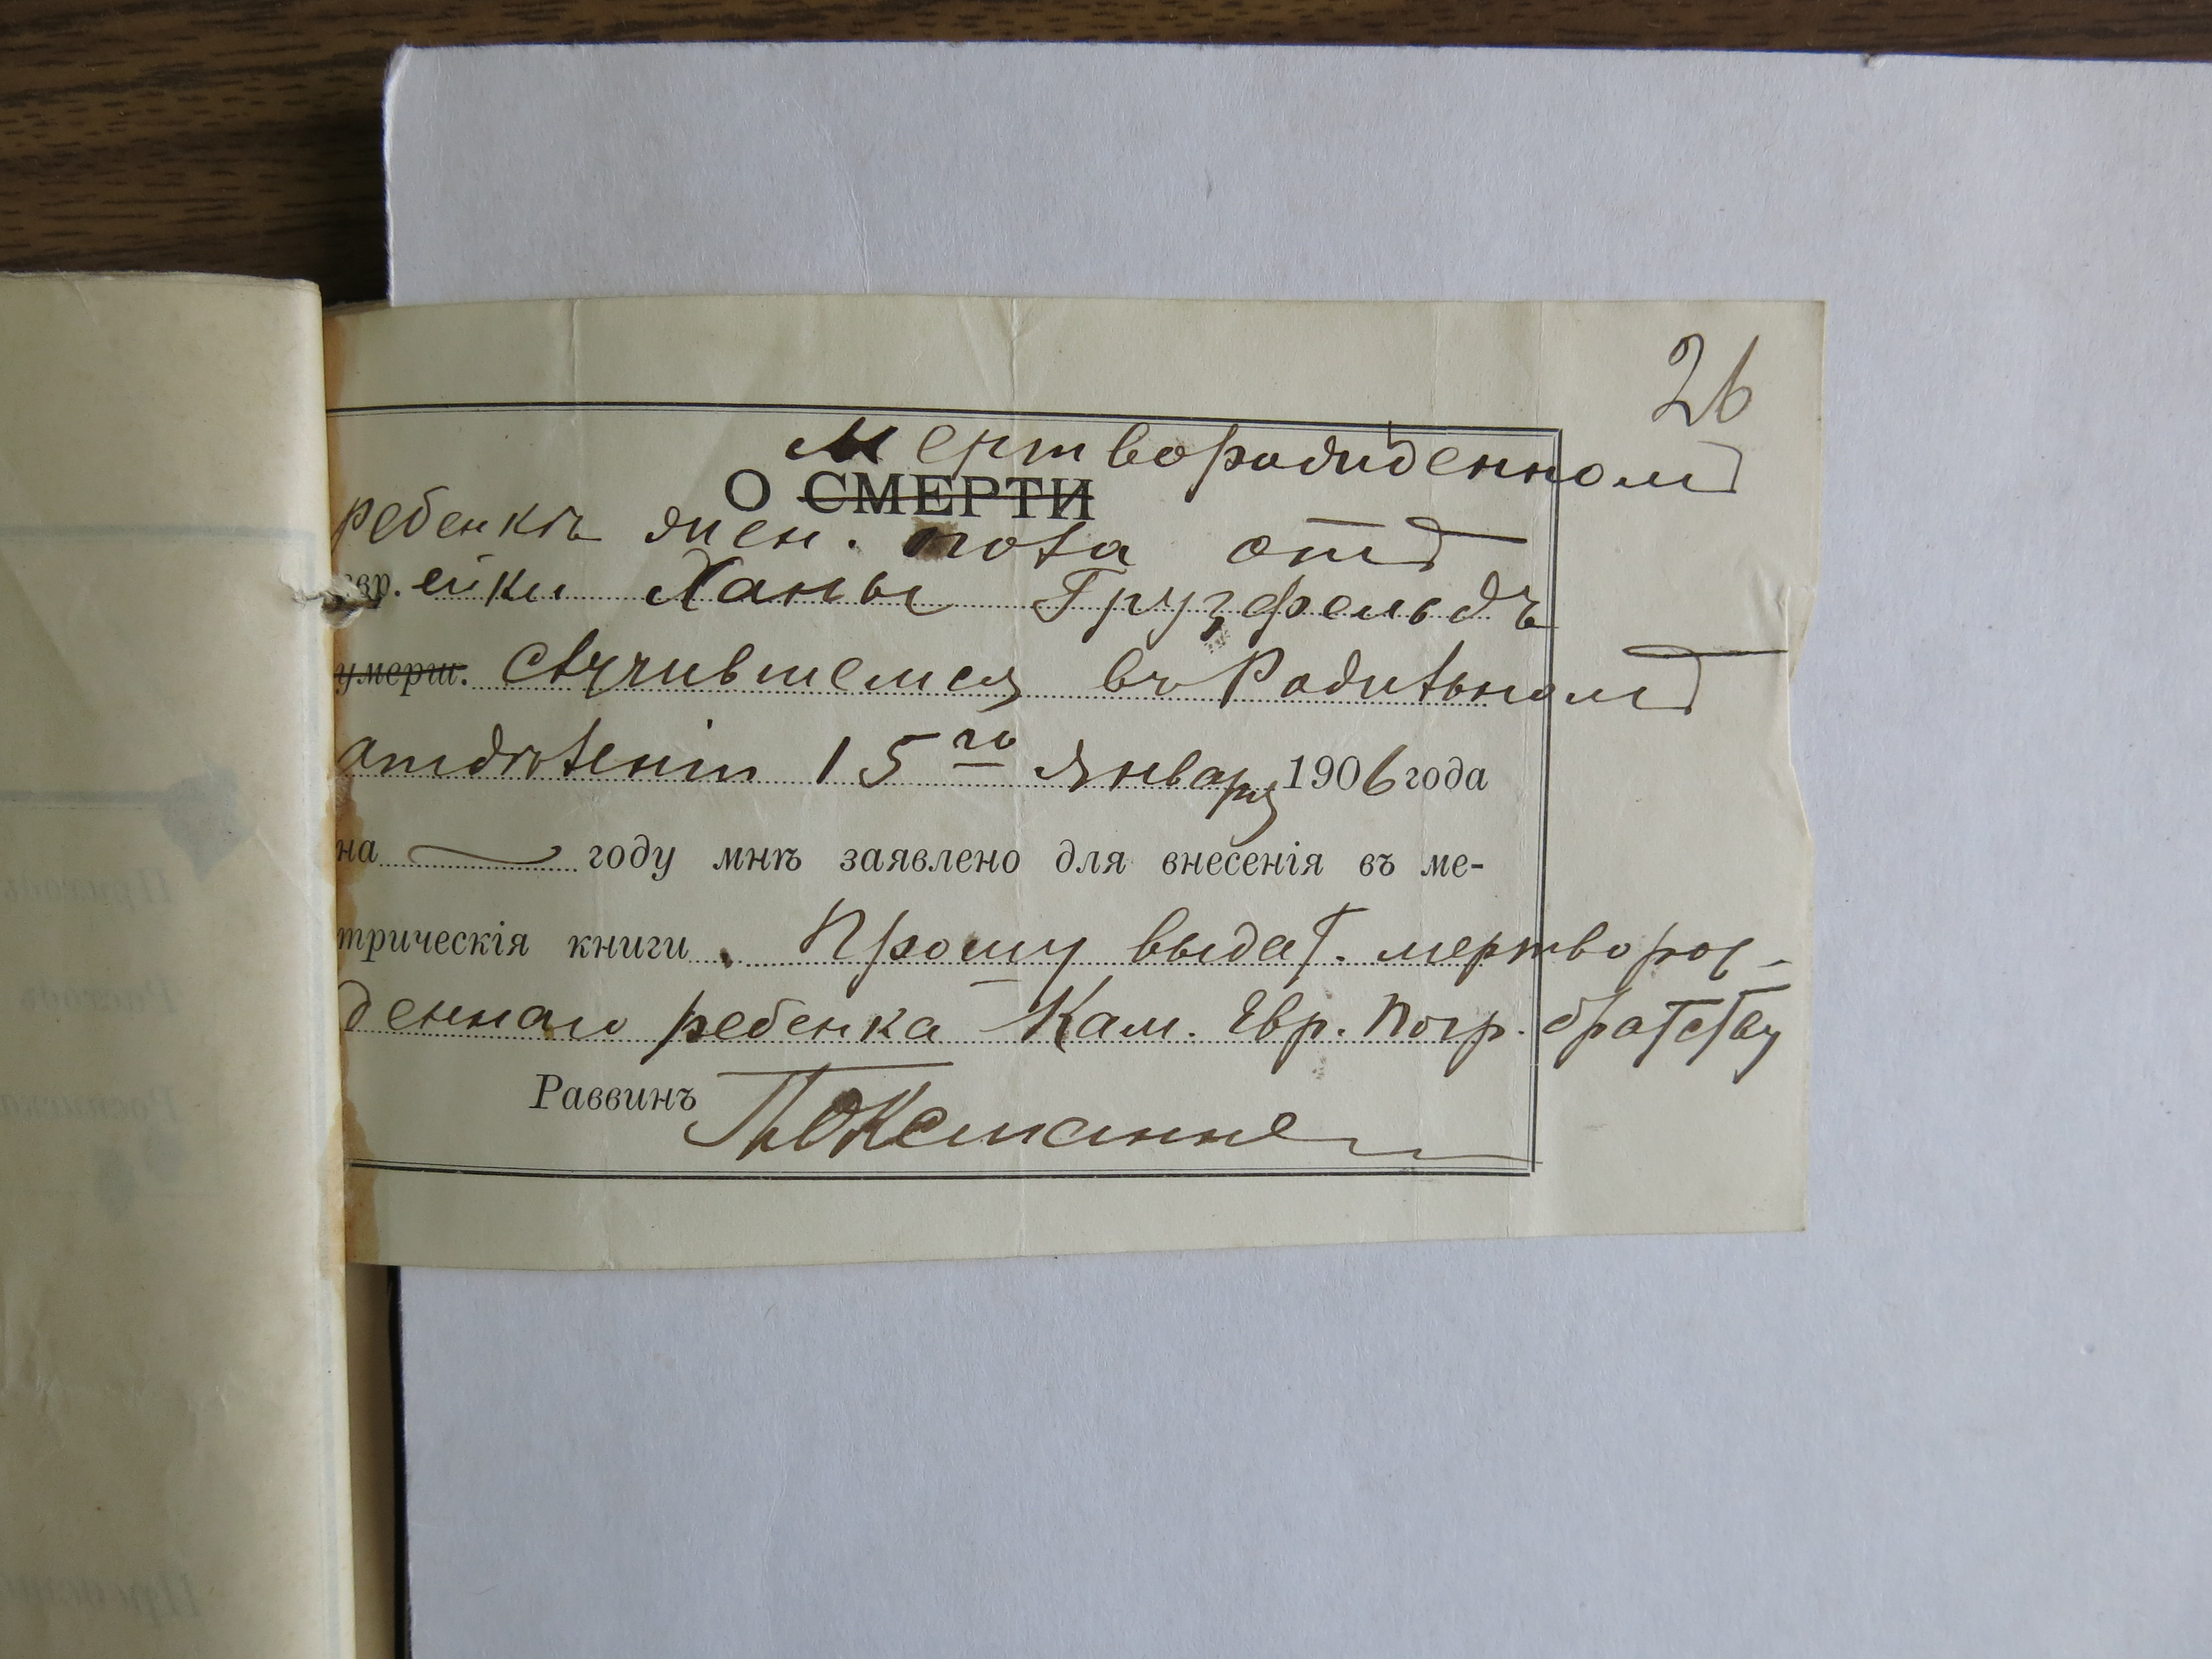 26
Мертворожденномъ
О СМЕРТИ
ребенкѣ жен. пола отъ
евр. ейки Ханы Грузфельдъ
умерш. случившемся въ Родильномъ
отдѣленіи 15го Января 1906 года
на годү мнѣ заявлено для внесенія въ ме-
трическія книги. Прошу выдат. мертворож-
деннаго ребенка Кам. Евр. Погр. братству
Раввинъ